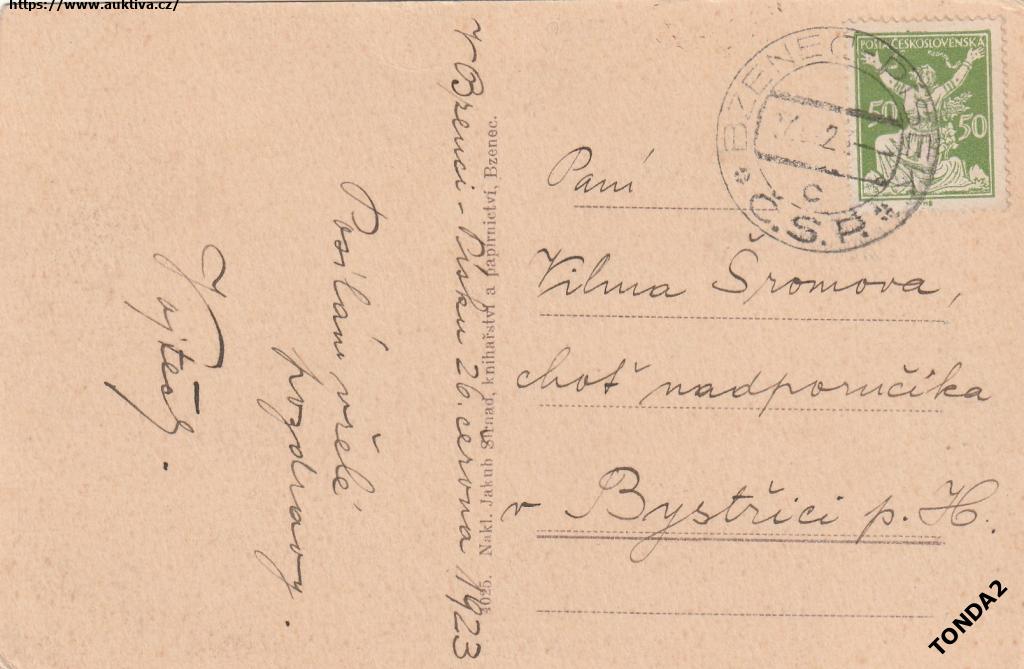 https://www.auktiva.cz/
V Bzenci - Písku 26. června 1923
Posílám vřelé
pozdravy.
Vojtěch.
4025. Nakl. Jakub Strnad, knihařství a papírnictví, Bzenec.
BZENEC-PÍSEK
C
Č.S.P.
POŠTA ČESKOSLOVENSKÁ
50 50
Paní
Vilma Šromova,
choť nadporučíka
v Bystřici p. H.
TONDA2